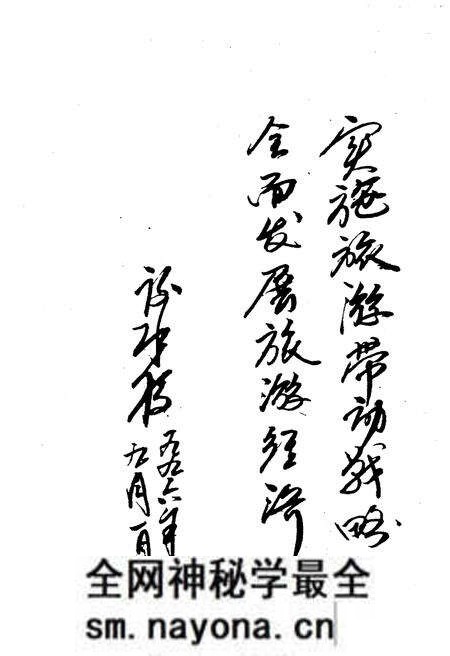 实施旅游带动战略
全面发展旅游经济
一九九六年
九月一日
全网神秘学最全
sm.nayona.cn